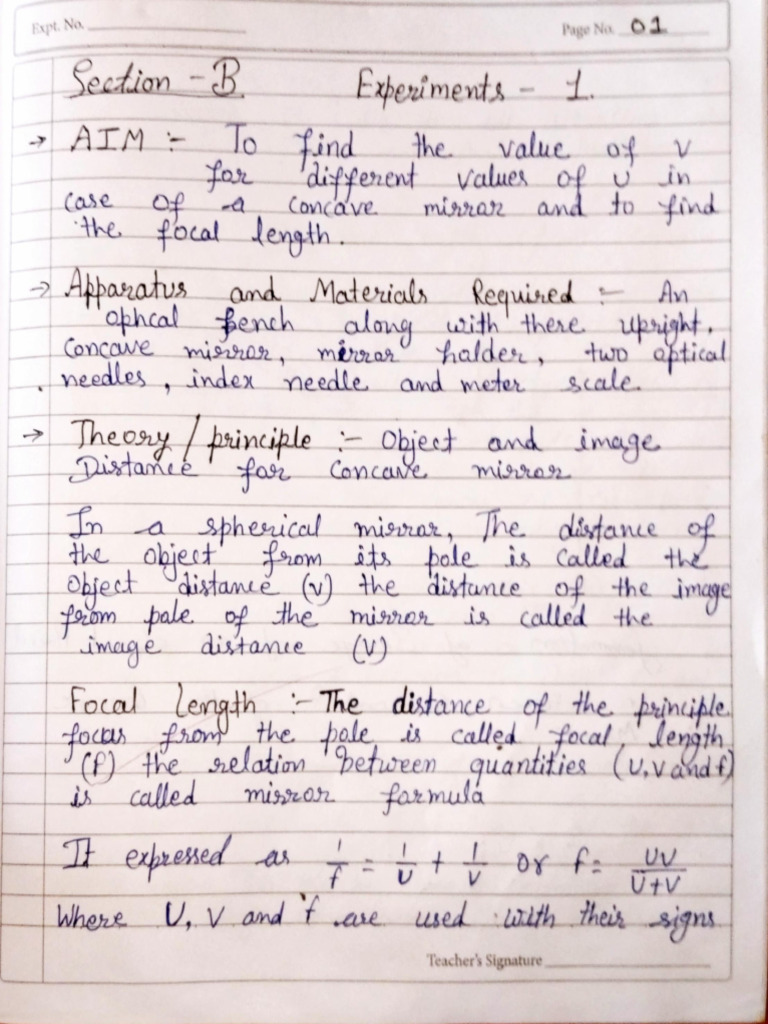 Expt. No.
Page No. 01
Section - B Experiments - 1.
→ AIM :- To find the value of v
for different values of u in
case of a concave mirror and to find
the focal length.
→ Apparatus and Materials Required :- An
ophcal bench along with there upright.
Concave mirror, mirror halder, two optical
needles, index needle and meter scale.
→ Theory / principle :- Object and image
Distance for concave mirror
In a spherical mirror, The distance of
the object from its pole is called the
object distance (v) the distance of the image
from pale of the mirror is called the
image distance (V)
Focal length :- The distance of the principle
focus from the pole is called focal length
(f) the relation between quantities (u, v and f)
is called mirror formula
It expressed as 1/f = 1/u + 1/v or f = UV/U+V
Where U, V and f are used with their signs
Teacher's Signature